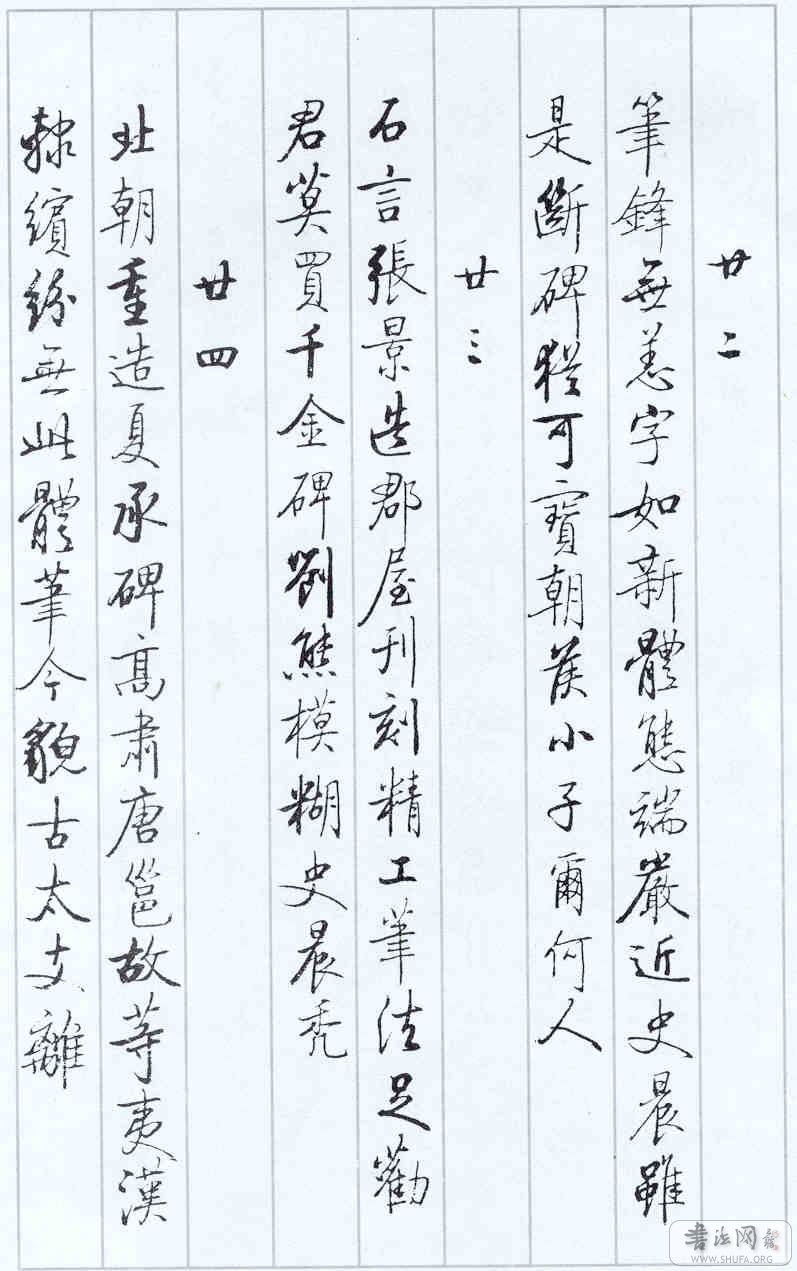 廿二
筆鋒無恙字如新體態端嚴近史晨雖
是斷碑猶可寶朝侯小子爾何人
廿三
石言張景造郡屋刊刻精工筆法足勸
君莫買千金碑劉熊模糊史晨禿
廿四
北朝重造夏承碑高肅唐邕故等夷漢
隸繽紛無此體筆今貌古太支離
書法网
WWW.SHUFA.ORG